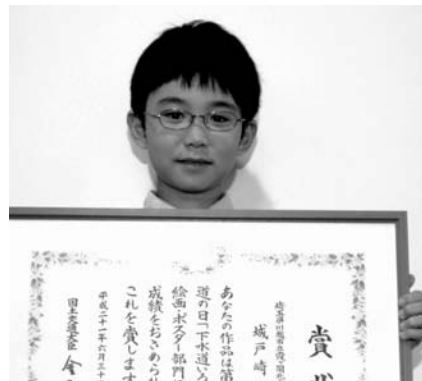 賞
埼玉県川越市立霞ケ関北
城戸崎
あなたの作品は第
道の日「下水道いろ
絵画・ポスター部門
成績をおさめられ
これを賞します
平成二十一年六月三十
国土交通大臣 金